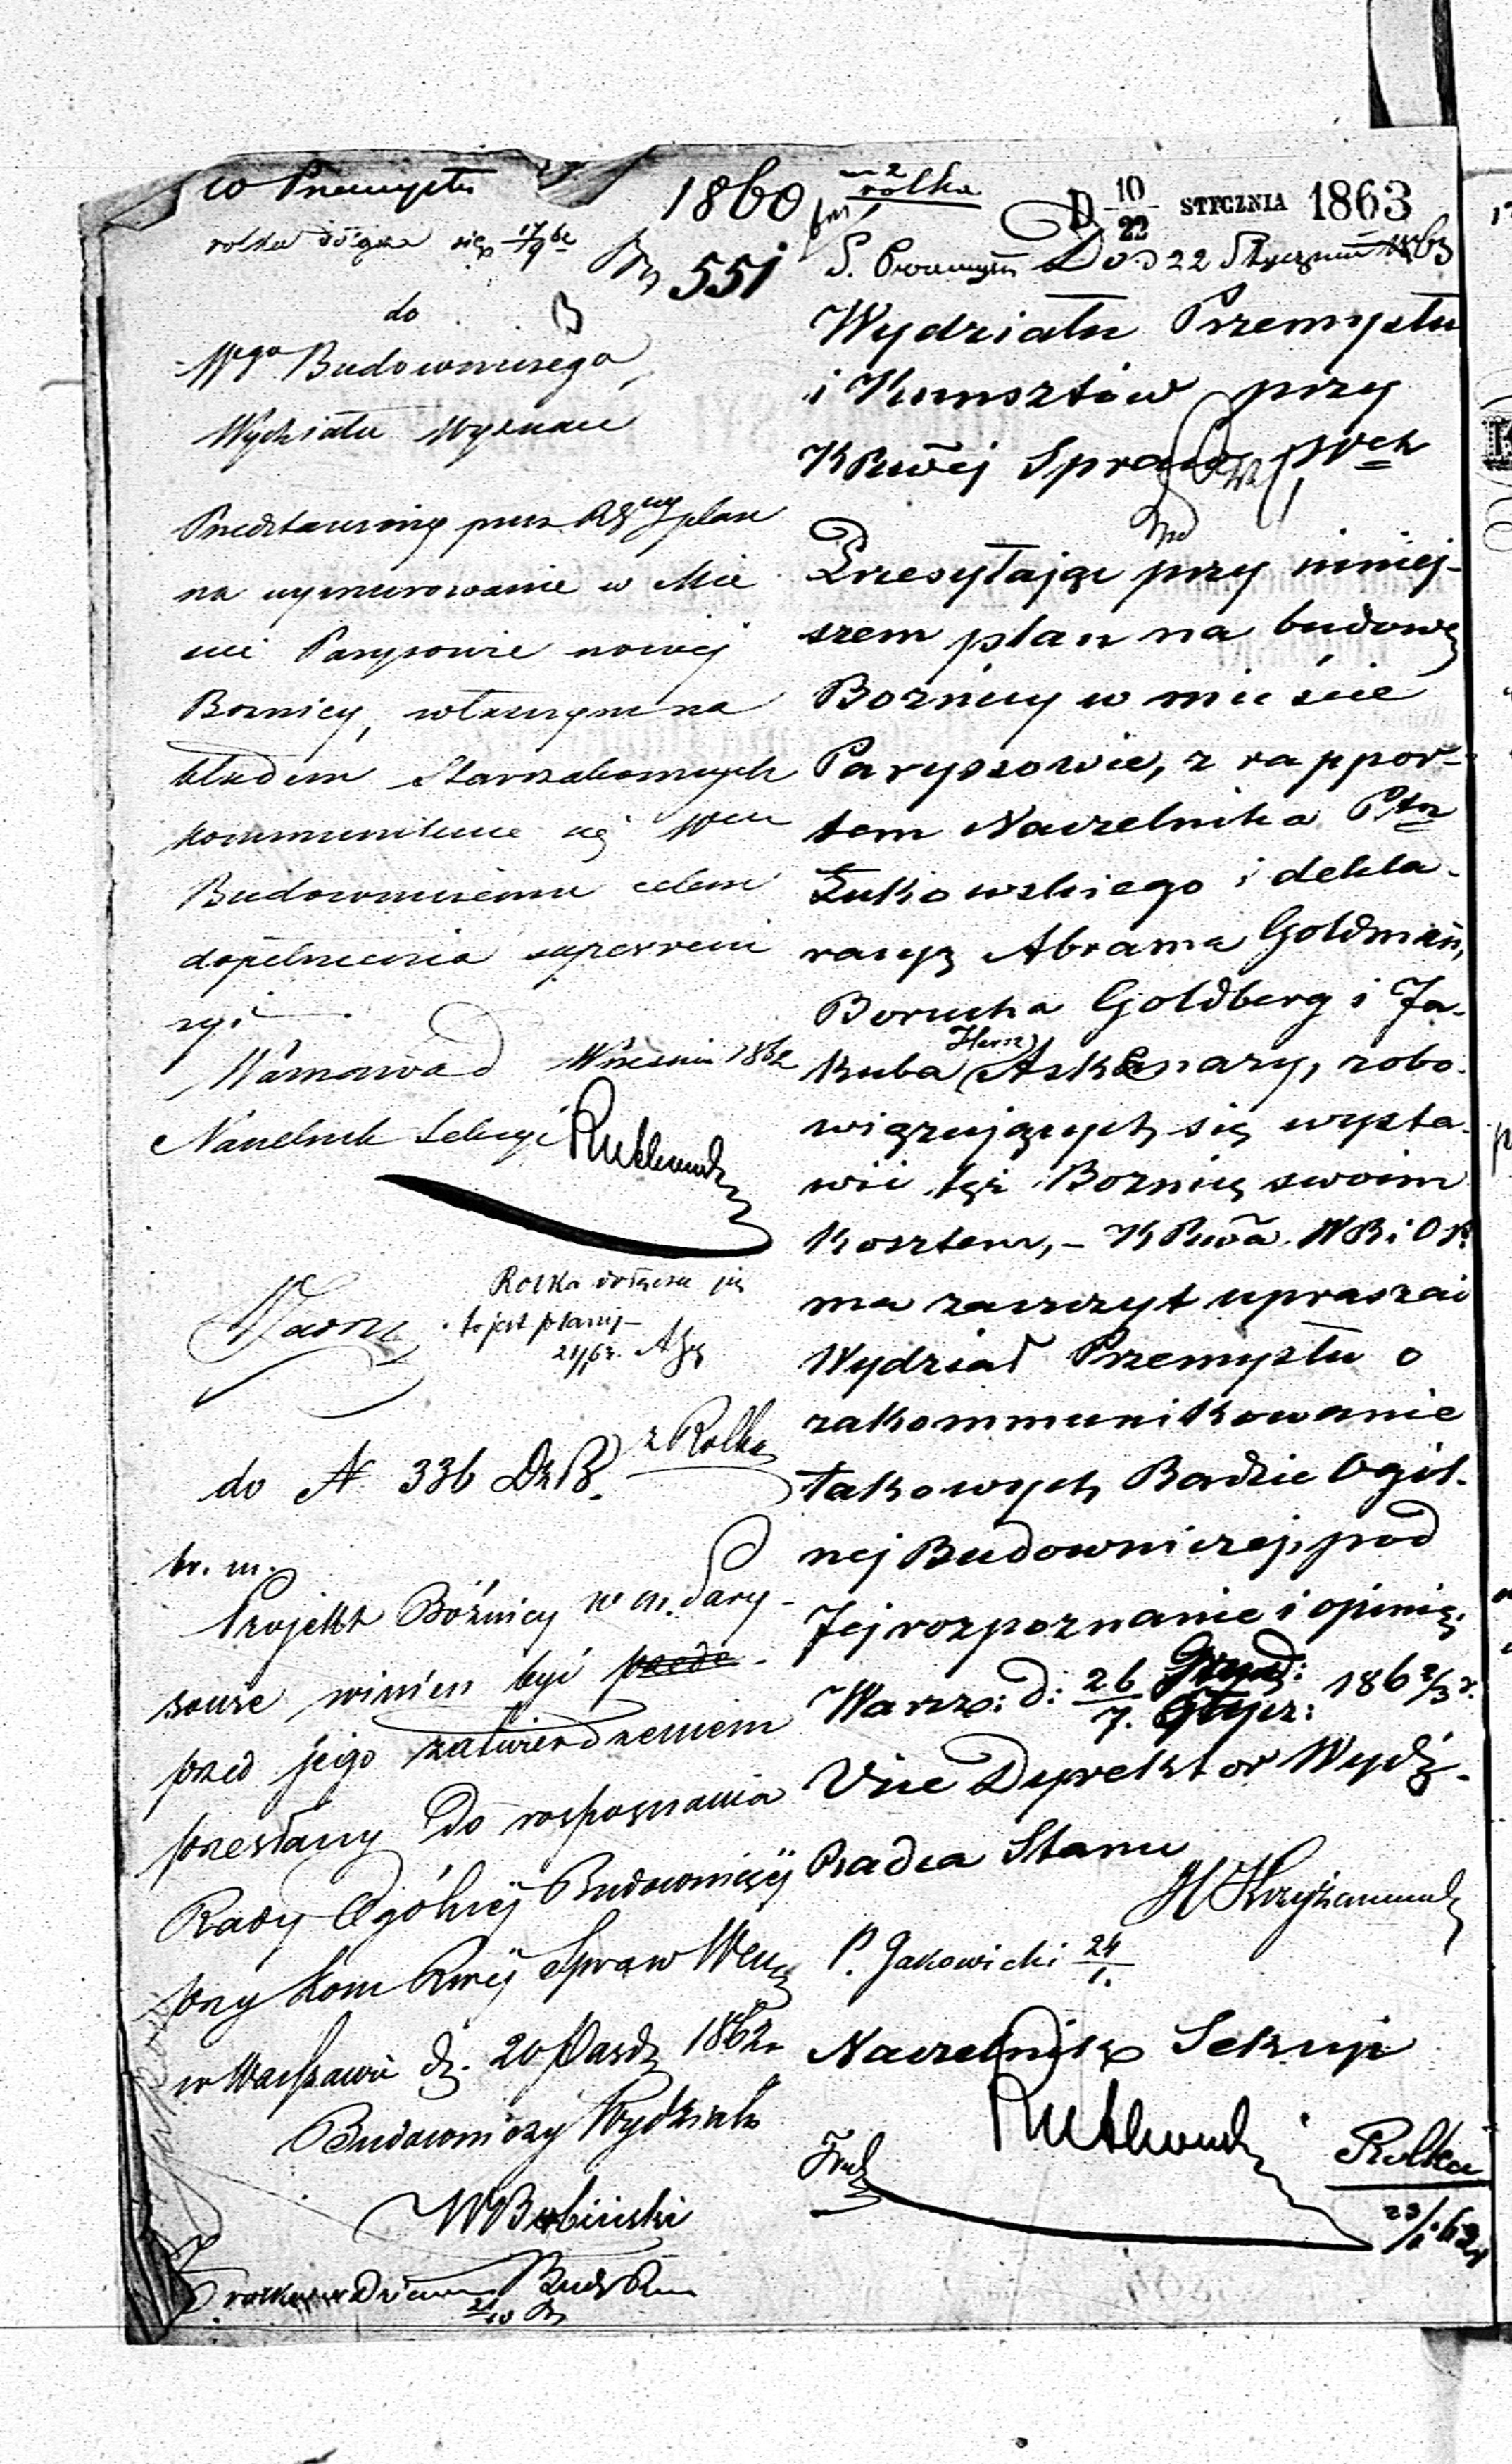 w Przemysłu
rolka dołącza się 17/9 62
1860
551
z rolką
D 10/22 STYCZNIA 1863
22 Stycznia 1863
do
Wgo Budowniczego
Wydziału Wyznań
Przedstawiony przez plan
na wymurowanie w Mie
ście Parysowie nowej
Boznicy, własnym na
kładem Starozakonnych
kommunikuie się Wmu
Budowniczemu celem
dopełnienia superrewi
zyi
Warszawa d Września 1862
Naczelnik Sekcyi Rutkowski
Rolka dołącza się
to jest plany
do N 336 Dz B. z Rolką
br. m.
Projekt Bóżnicy w m. Pary-
sowie winien być
przed jego zatwierdzeniem
przesłany do rospoznania
Rady Ogólnej Budowniczej
przy Kom Rwej Spraw Wew
w Warszawie d. 20 Pazdz 1862r
Budowniczy Wydziału
Wydziału Przemysłu
i Kunsztów przy
KRwej Spraw Wch
Przesyłając przy niniej-
szem plan na budowę
Boznicy w mieście
Paryssowie, z rappor-
tem Naczelnika Ptu
Łukowskiego i dekla-
racyą Abrama Goldman,
Borucha Goldberg i Ja-
Hersz
kuba Askenazy, zobo-
wiązujących się wysta-
wić tęż Boznicę swoim
kosztem, – KRwa WR i OP.
ma zaszczyt upraszać
Wydział Przemysłu o
zakommunikowanie
takowych Radzie Ogól-
nej Budowniczej, pod
Jej rozpoznanie i opinię.
Warsz: d: 26 Grud: / 7. Stycz: 186 2/3 r.
Vice Dyrektor Wydz.
Radca Stanu
H Krzyżanowski
P. Jakowicki 24/1.
Naczelnik Sekcyi
Rutkowski
Rolka